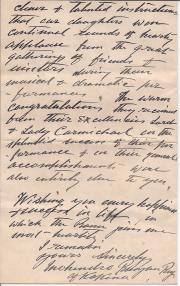 clever & talented instructions
that our daughters won
continued rounds of hearty
applause from the great
gatherings of friends &
during their
musical & dramatic per
formance. The warm
congratulations they received
from their Excellencies Lord
& Lady Carmichael on the
splendid success of their per
formance & on their general
accomplishments were
also entirely due to you.
Wishing you every happiness
& success in life in
which the joins me
most heartily
I remain
yours sincerely